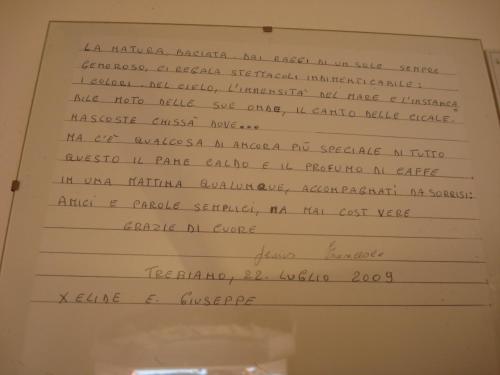 LA NATURA BACIATA DAI RAGGI DI UN SOLE SEMPRE
GENEROSO, CI REGALA STETTACOLI INDIMENTICABILE:
I COLORI DEL CIELO, L'IMMENSITA' DEL MARE E L'INSTANCA
BILE MOTO DELLE SUE ONDE, IL CANTO DELLE CICALE
NASCOSTE CHISSÀ DOVE...
MA C'È QUALCOSA DI ANCORA PIÙ SPECIALE DI TUTTO
QUESTO IL PANE CALDO E IL PROFUMO DI CAFFE
IN UNA MATTINA QUALUNQUE, ACCOMPAGNATI DA SORRISI
AMICI E PAROLE SEMPLICI, MA MAI COSÌ VERE
GRAZIE DI CUORE
TREBIANO, 22 LUGLIO 2009
X ELIDE E GIUSEPPE